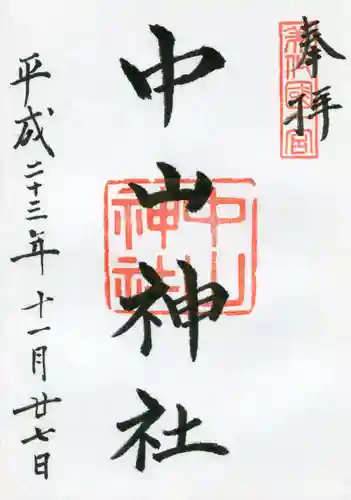 奉拝
中山神社
平成二十三年十一月廿七日
中山神社